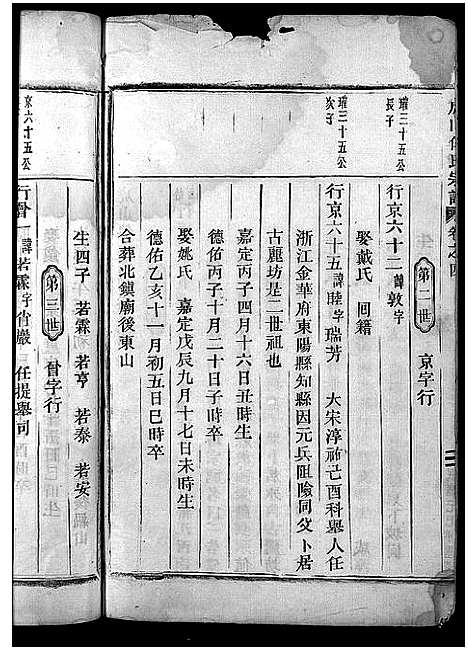 宗譜 卷之四
第二世 京字行
瓘三十五公
長子
行京六十二 諱敦 字
娶戴氏 回籍
瓘三十五公
次子
行京六十五 諱睦 字瑞芳 大宋淳祐己酉科舉人任
浙江金華府東陽縣知縣因元兵阻險同父卜居
古麗坊是二世祖也
嘉定丙子四月十六日丑時生
德佑丙子十月二十日子時卒
娶姚氏 嘉定戊辰九月十七日未時生
德佑乙亥十一月初五日巳時卒
合葬北鎮廟後東山
生四子 若霖 若亨 若泰 若安
第三世 會字行
京六十五公
行會一 諱若霖 字肖巖 任提舉司